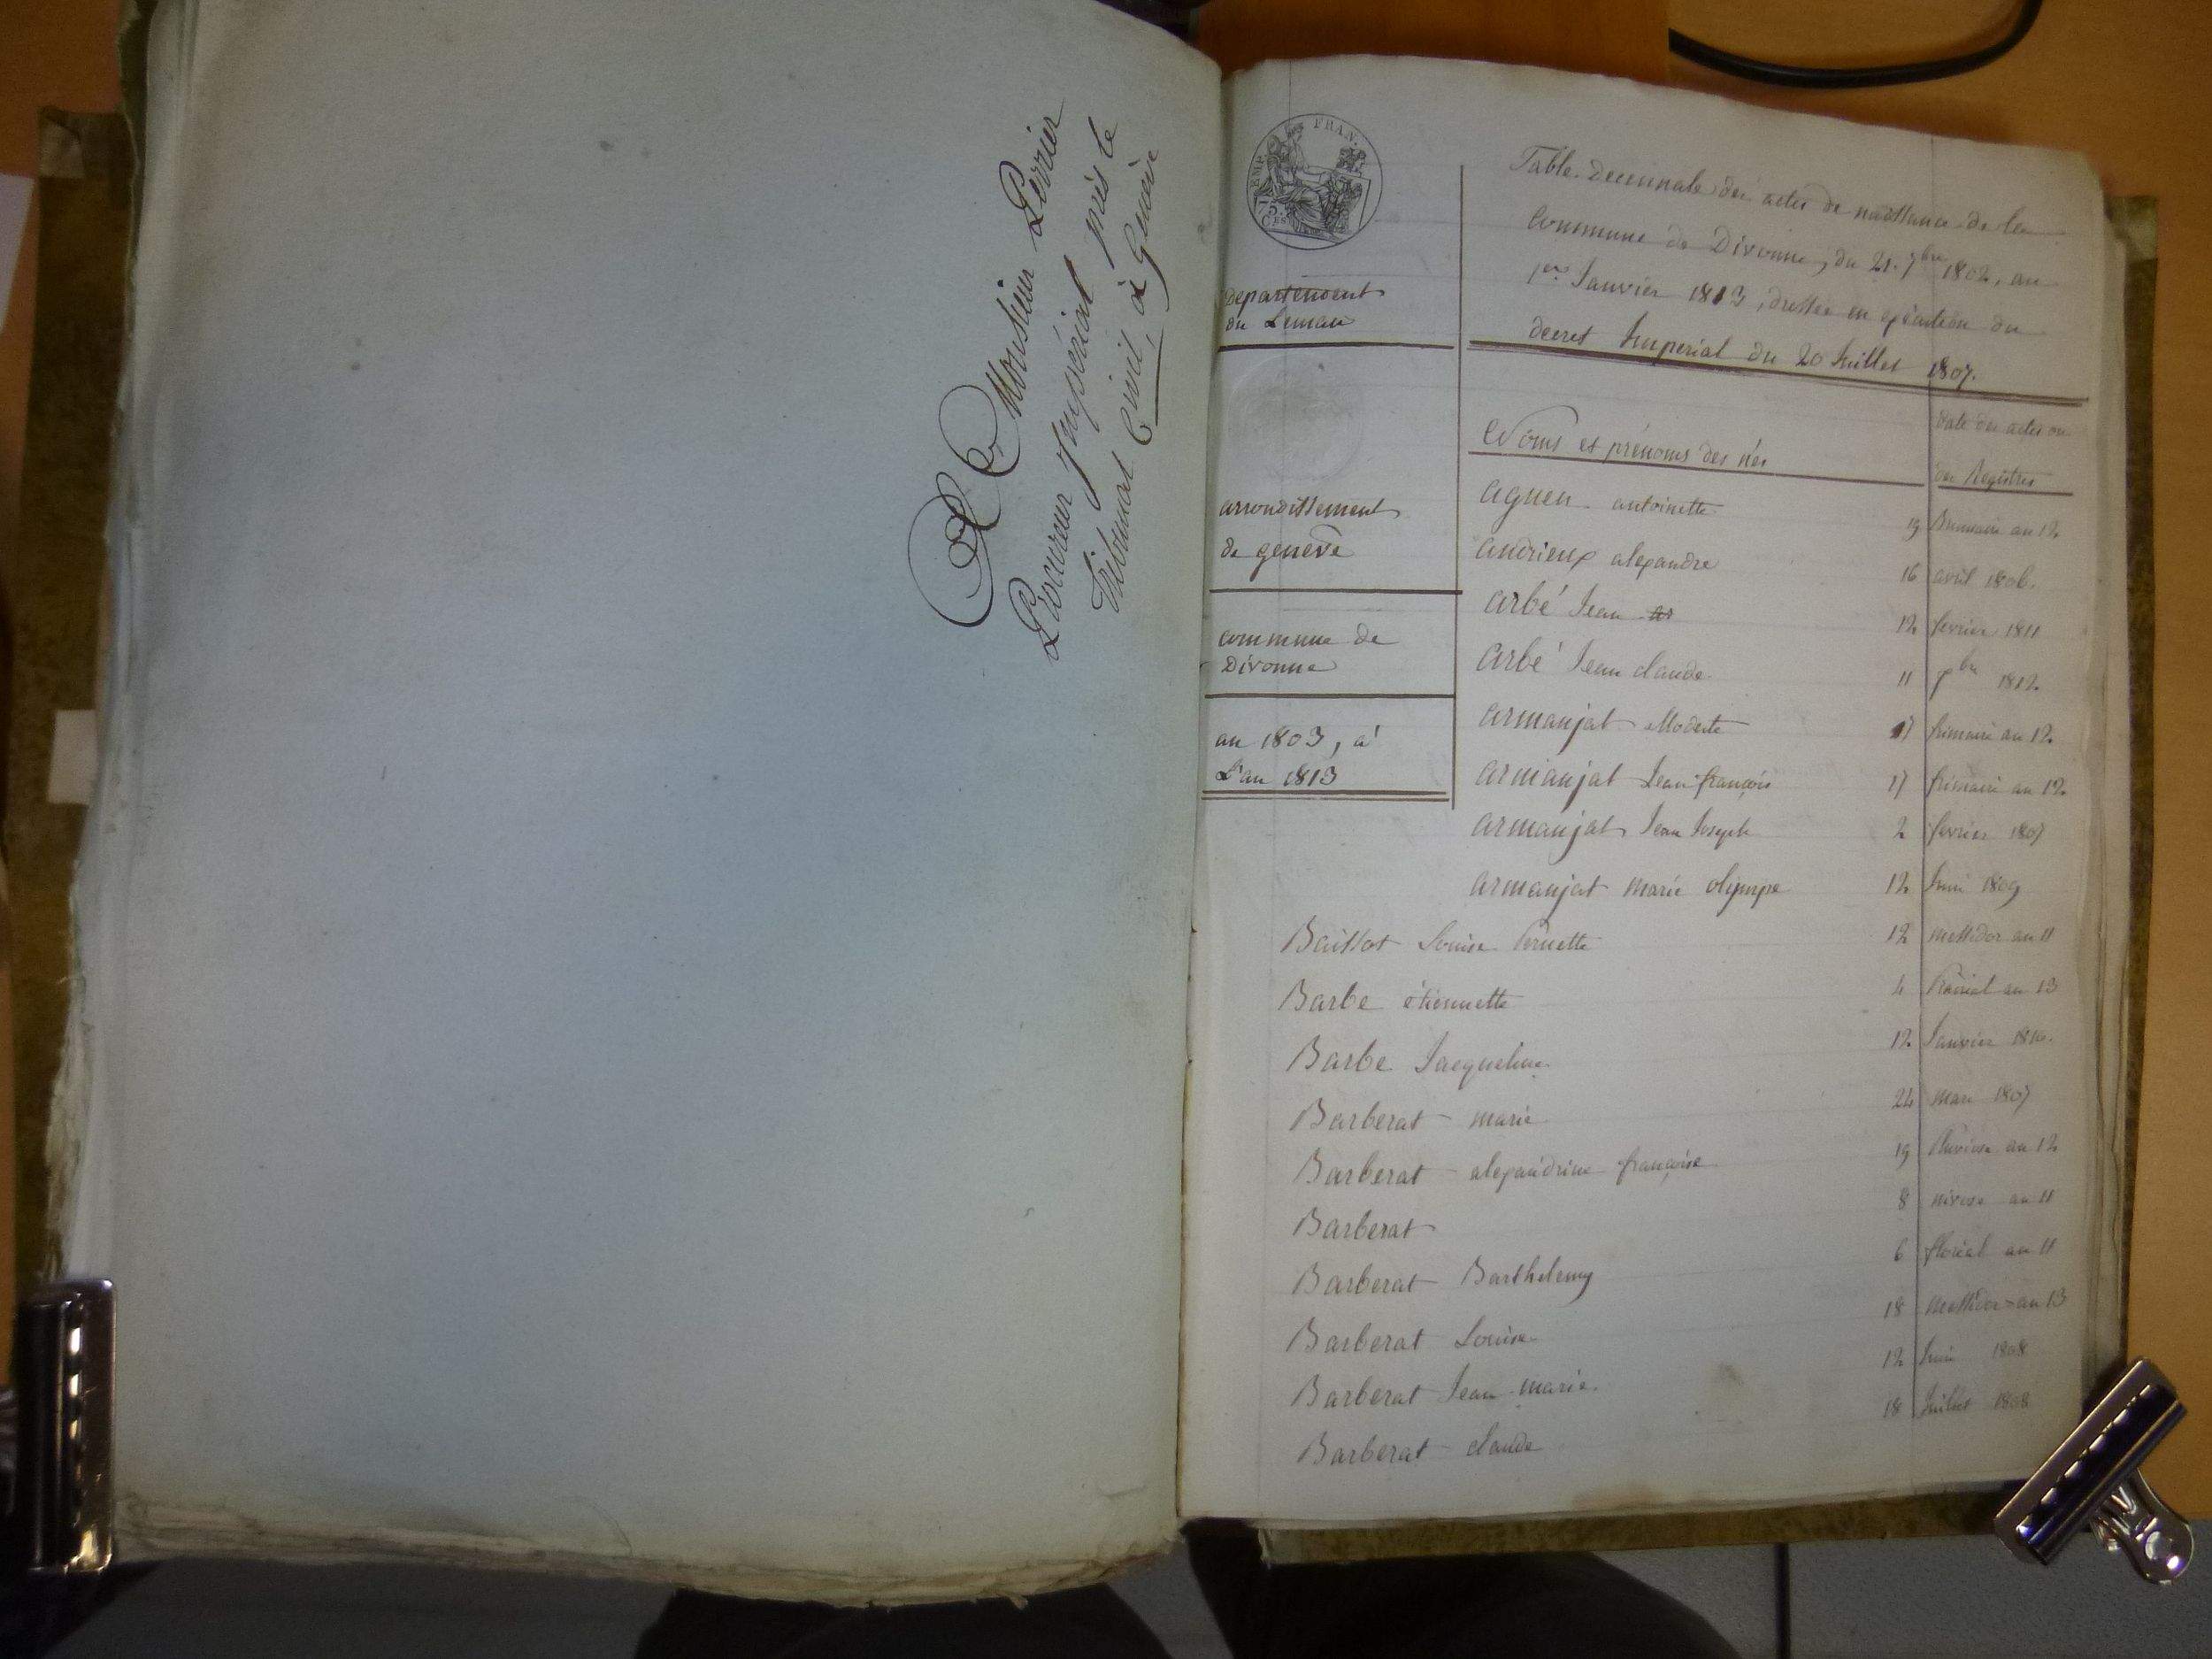 A Monsieur Perrier
Procureur Impérial près le
Tribunal Civil, à Genève
EMP. FRAN.
75.
C.ES
Table decennale des actes de naissance de la
commune de Divonne, du 21. 7bre 1802, au
1er Janvier 1813, dressée en exécution du
decret Imperial du 20 Juillet 1807.
departement
du Leman
arrondissement
de genève
commune de
Divonne
an 1803, à
L'an 1813
Noms et prénoms des nés
date des actes ou
des Registres
aguen antoinette 19 Brumaire an 12
andrieux alexandre 16 avril 1806.
arbé Jean ar 12 fevrier 1811
arbé Jean claude 11 7bre 1812.
armanjat Modeste 17 frimaire an 12
armanjat Jean françois 17 frimaire an 12
armanjat Jean Joseph 2 fevrier 1807
armanjat marie olimpe 12 Juin 1809
Baissot Louise Pernette 12 messidor an 11
Barbe étiennette 4 Prairial an 13
Barbe Jacqueline 12 Janvier 1810.
Barberat marie 24 mars 1807
Barberat alexandrine françoise 19 Pluviose an 12
Barberat 8 nivose an 11
Barberat Barthelemy 6 floréal an 11
Barberat Louise 18 messidor an 13
Barberat Jean marie. 12 Juin 1808
Barberat claude 18 Juillet 1808